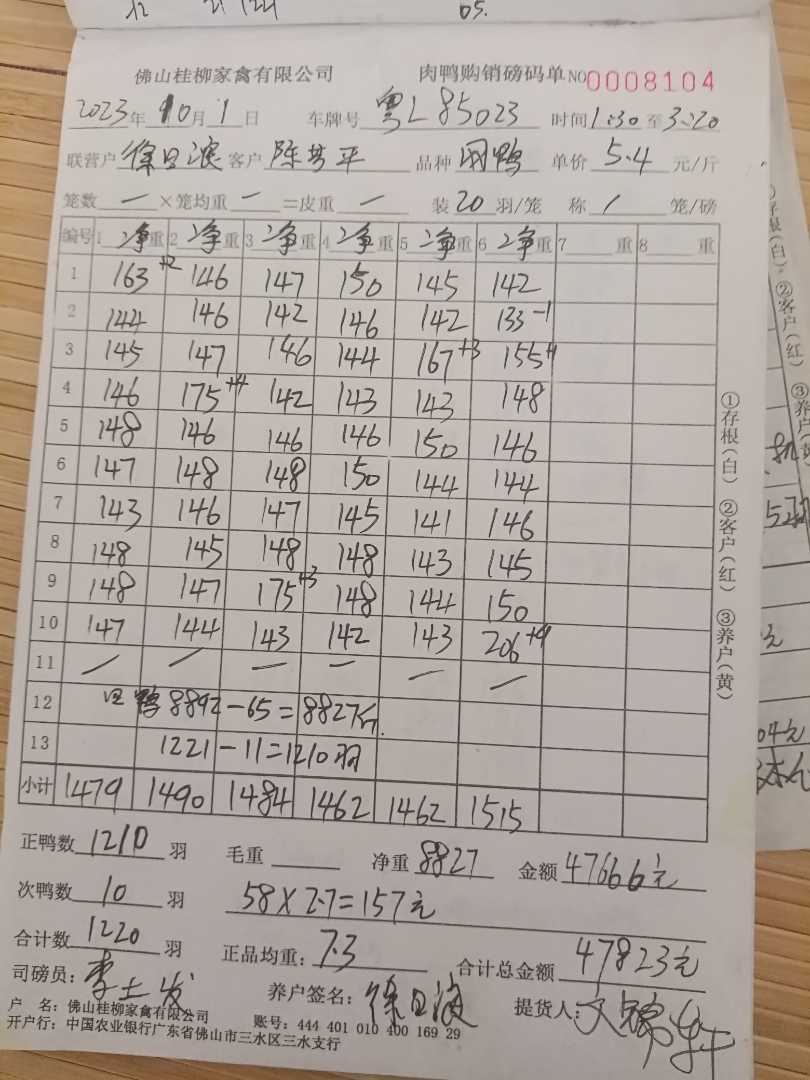 05.
佛山桂柳家禽有限公司 肉鸭购销磅码单 NO 0008104
2023年 10月 1日 车牌号 粤L85023 时间 1:30 至 3:20
联营户 徐日波 客户 陈芳平 品种 网鸭 单价 5.4 元/斤
笼数 一 ×笼均重 一 =皮重 一 装 20 羽/笼 称 1 笼/磅
编号 1 净重 2 净重 3 净重 4 净重 5 净重 6 净重 7 重 8 重
1 163+2 146 147 150 145 142
2 144 146 142 146 142 133-1
3 145 147 146 144 167+3 155+1
4 146 175+4 142 143 143 148
5 148 146 146 146 150 146
6 147 148 148 150 144 144
7 143 146 147 145 141 146
8 148 145 148 148 143 145
9 148 147 175+3 148 144 150
10 147 144 143 142 143 206+9
11 一 一 一 一 一 一
12 鸭 8892-65=8827斤.
13 1221-11=1210羽
小计 1479 1490 1484 1462 1462 1515
正鸭数 1210 羽 毛重 净重 8827 金额 47666元
次鸭数 10 羽 58×2.7=157元
合计数 1220 羽 正品均重: 7.3 合计总金额 47823元
司磅员: 李士发 养户签名: 徐日波 提货人:
户 名: 佛山桂柳家禽有限公司 账号: 444 401 010 400 169 29
开户行: 中国农业银行广东省佛山市三水区三水支行
①存根(白) ②客户(红) ③养户(黄)
①存根(白) ②客户(红) ③养户(黄
04元